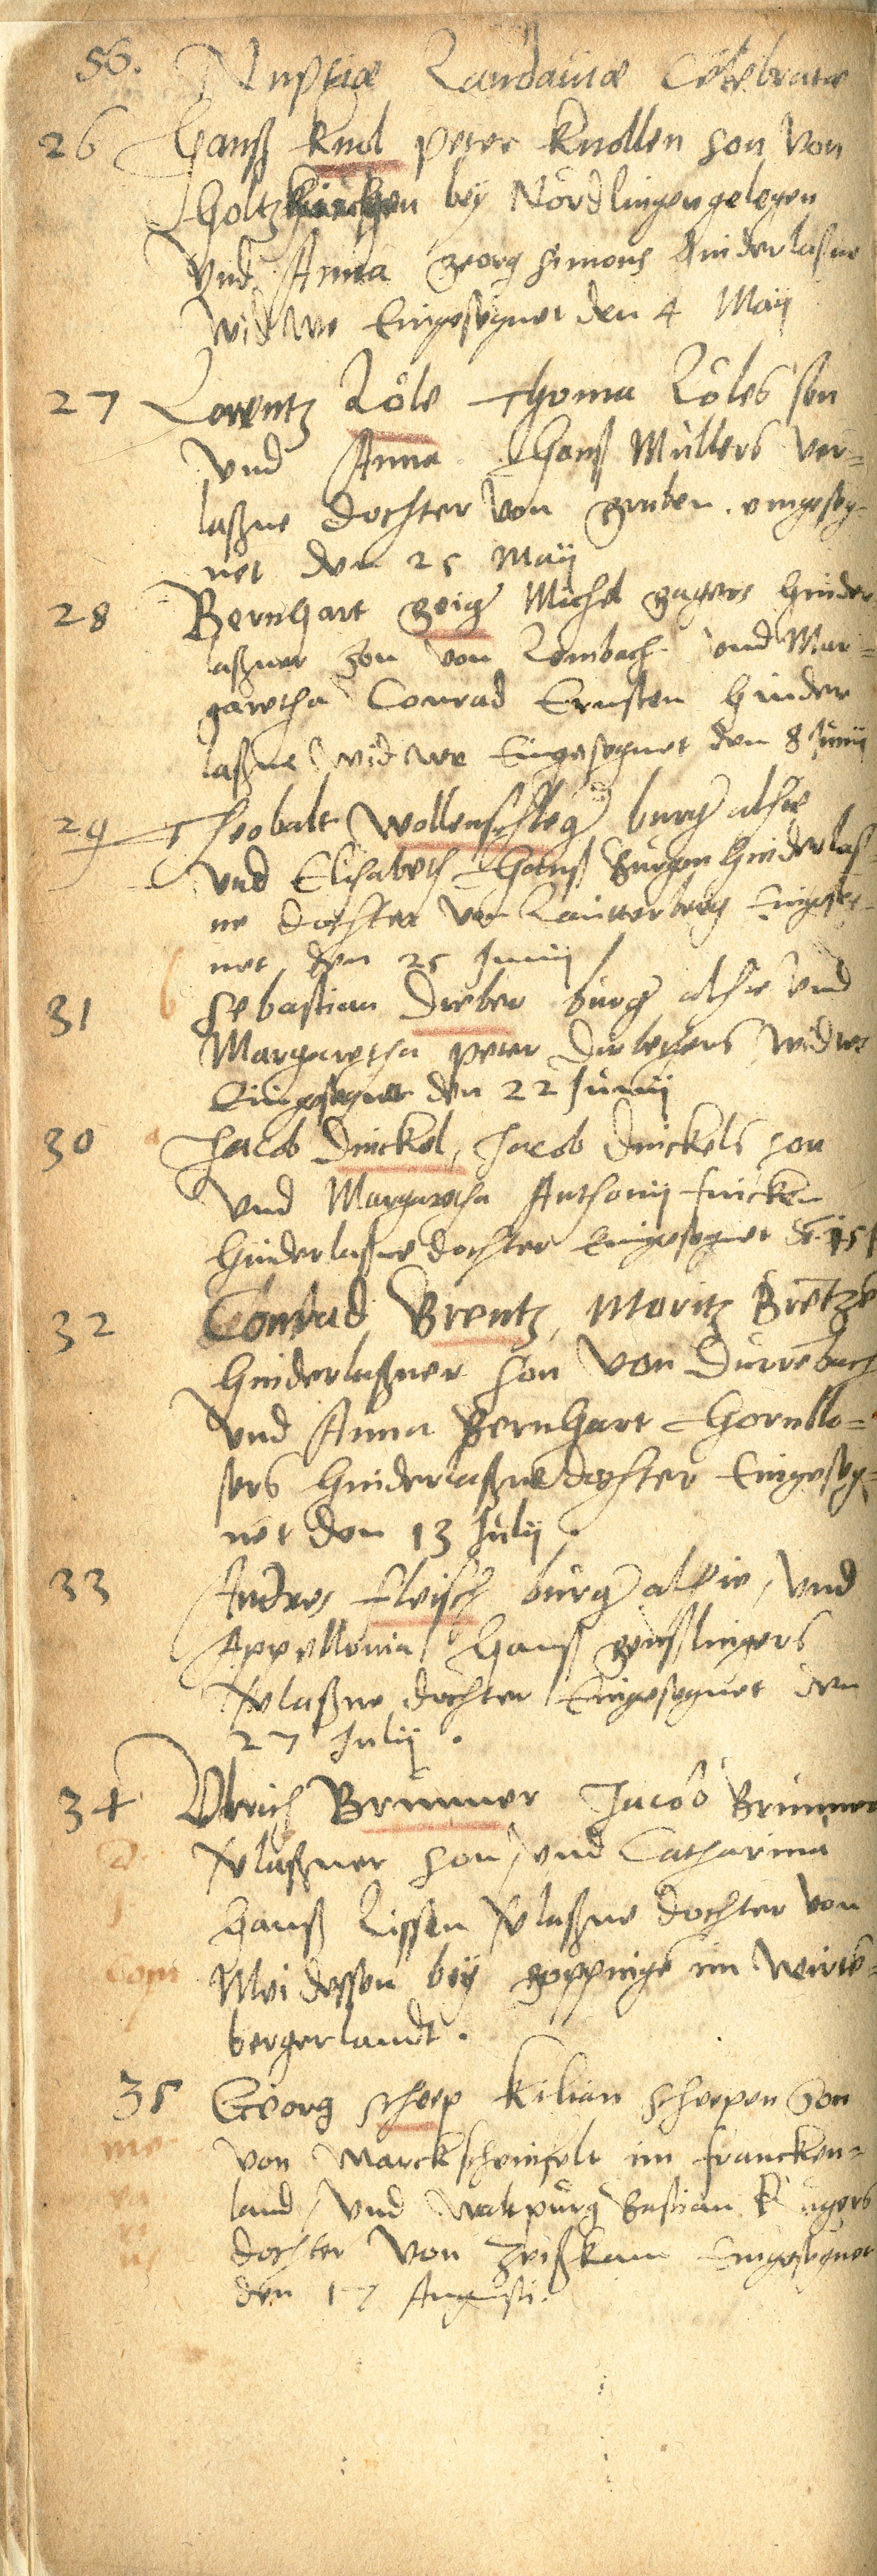 56. Nuptiae Landauiae Celebratae
26 Hanß Knol peter Knollen son von
Holtzkirchen bey Nördlingen gelegen
vnd Anna georg simons hinderlasne
widwe Eingesegnet den 4 Maij
27 Lorentz Löle Thoma Löles son
vnd Anna Hanß Müllers ver=
laßne dochter von gruben. eingeseg=
net den 25 Maij
28 Bernhart geiger Michel hinder
laßner son von Rombach vnd Mar=
garetha Conrad Ernsten hinder
laßne widwe Eingesegnet den 8 Junij
29 Theobalt Wollenschleger burger alhie
vnd Elisabeth Hanß hinderlas=
ne dochter von Lautterberg Eingeseg=
net den 25 Junij
31 Sebastian Dreber burger alhie vnd
Margaretha peter widwe
Eingesegnet den 22 Junij
30 Jacob Dinckel, Jacob dinckels son
vnd Margaretha Anthonij fincken
hinderlaßne dochter Eingesegnet
32 Conrad Brentz, Moritz Brentze
hinderlaßner son von Durrenbach
vnd Anna Bernhart Hornblo=
sers hinderlaßne dochter Eingeseg=
net den 13 Julij.
33 Andres fleisch burger alhie, vnd
Appellonia Hanß genslingers
verlaßne dochter Eingesegnet den
27 Julij.
34 Vlrich Brunner Jacob Brunner
verlaßner son, vnd Catharina
Hanß Lissen verlaßne dochter von
bey goppingen im wirte=
bergerlandt.
35 Georg scheep Kilian scheepen Son
von Marckscheinfelt im francken=
land, vnd walpurg Bastian Krugers
dochter von Zeißkam Eingesegnet
den 17 Augusti.